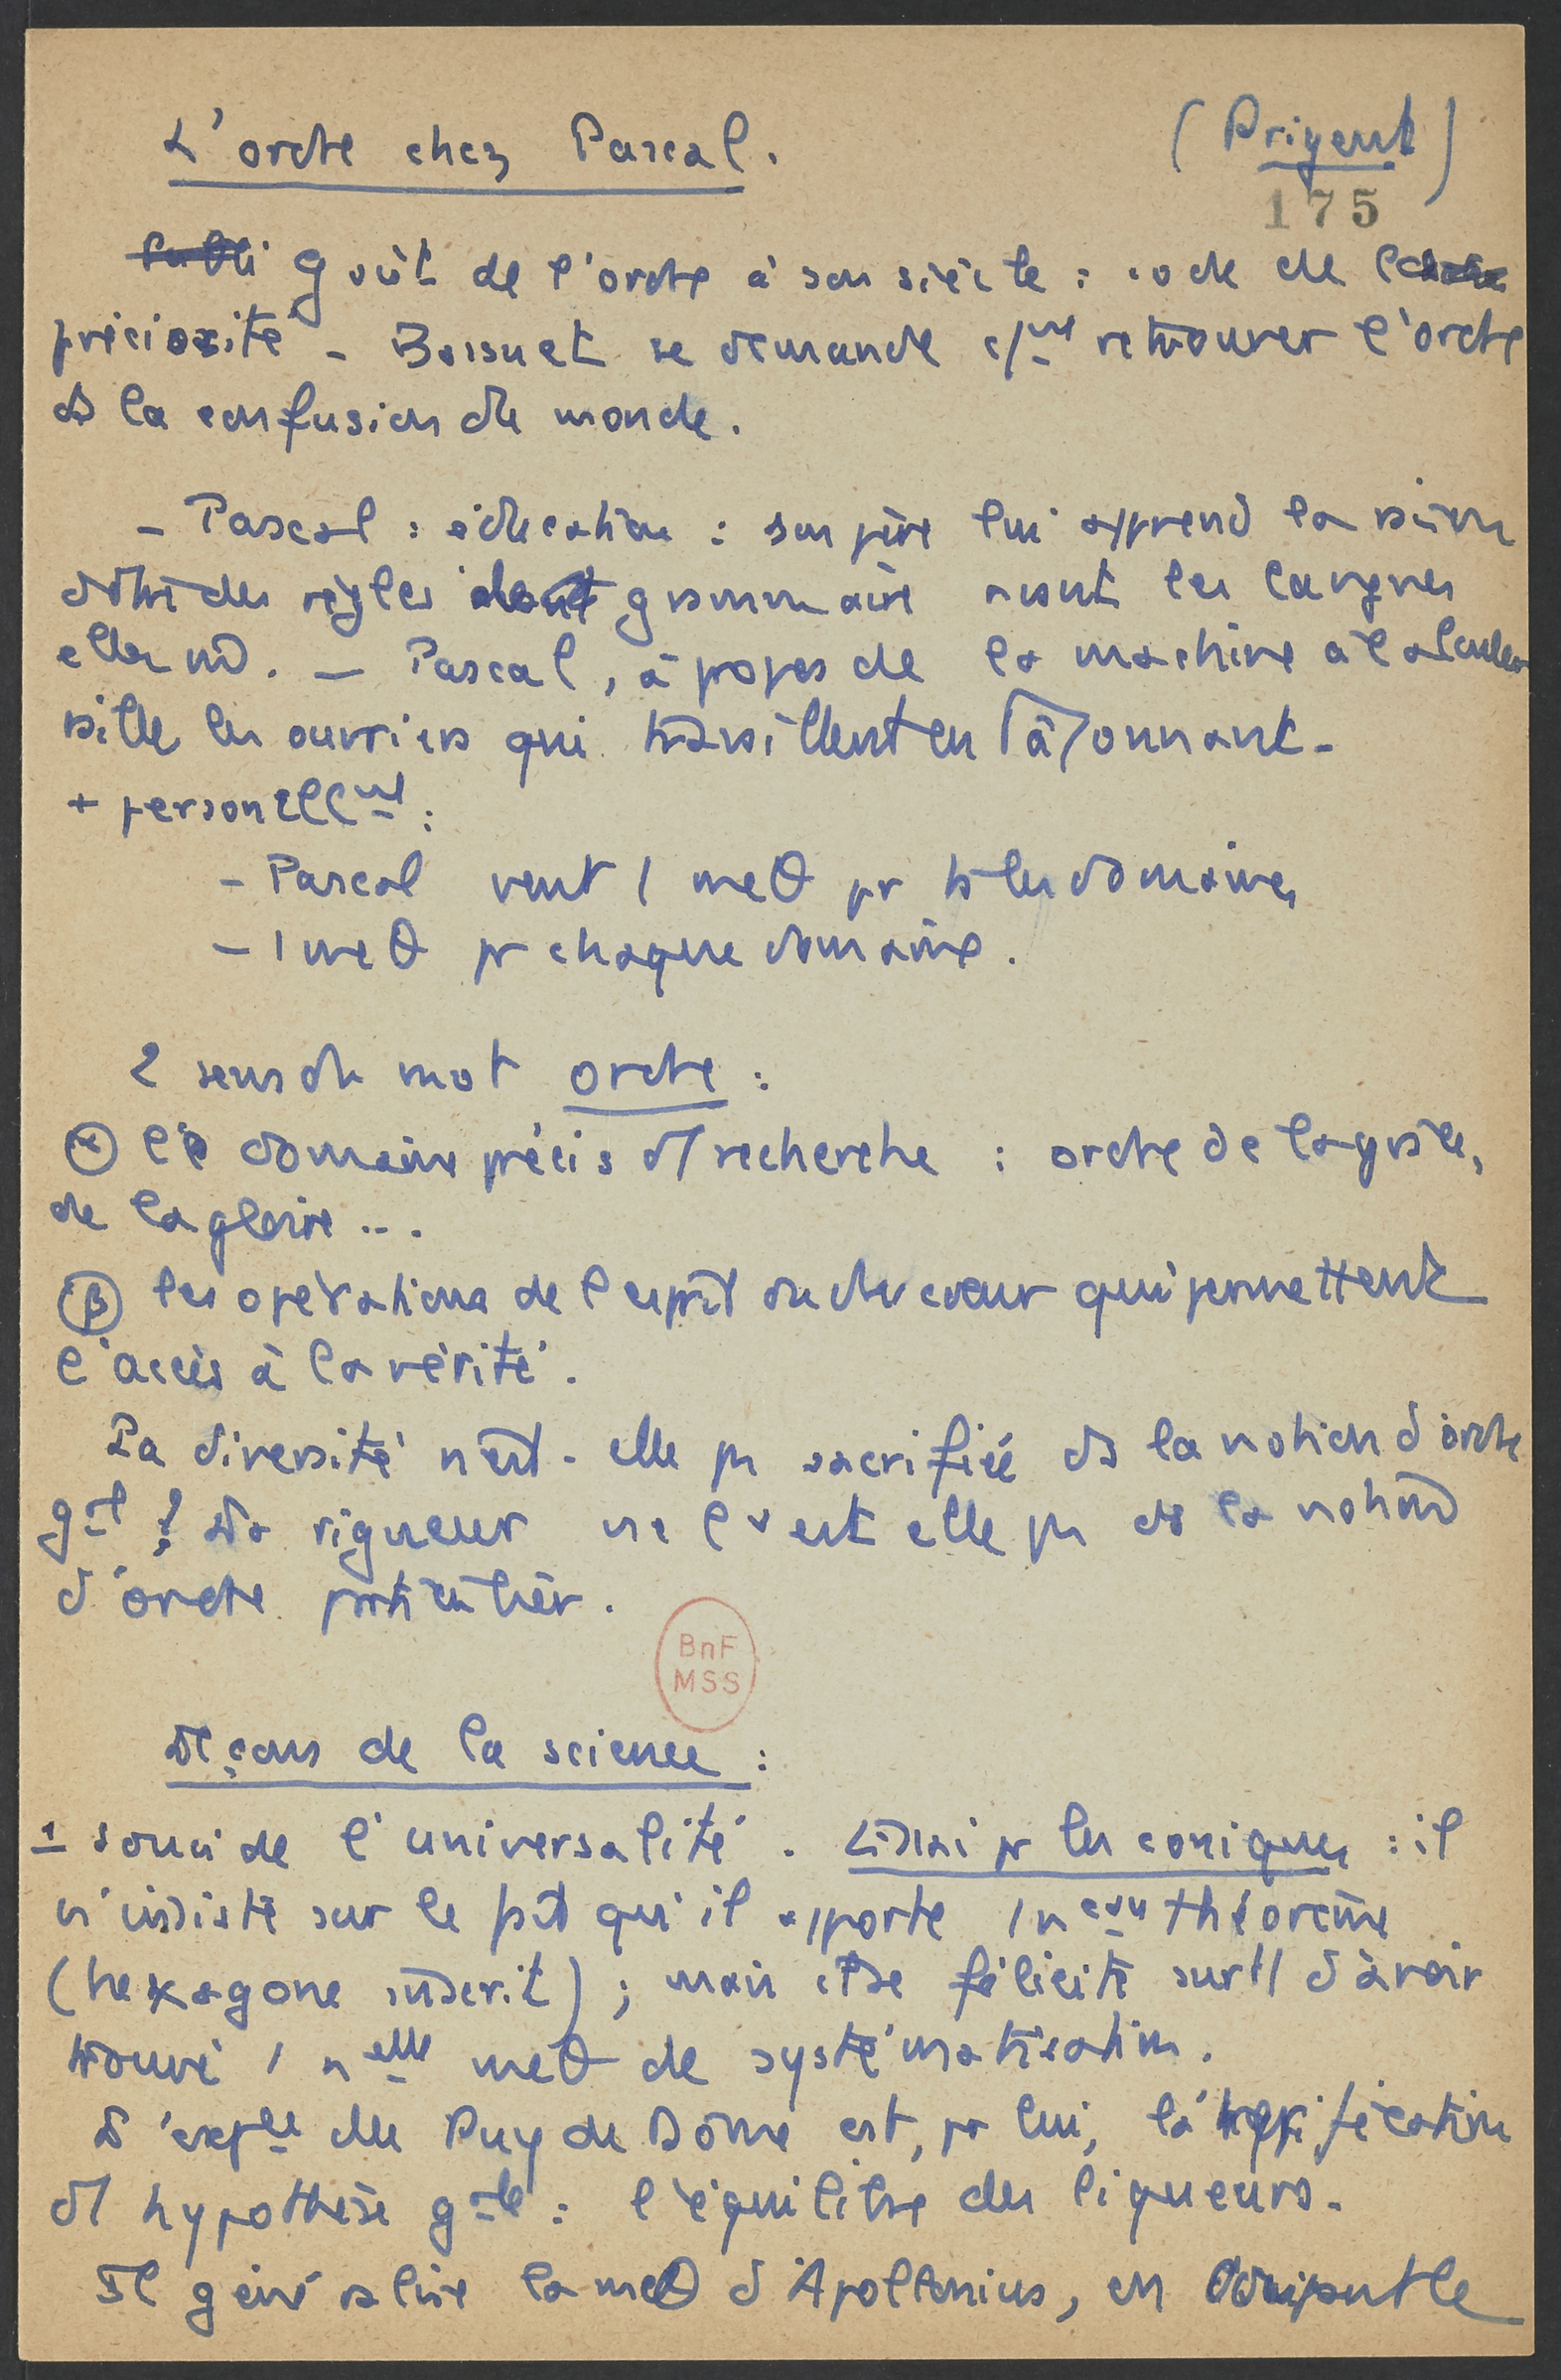 L'ordre chez Pascal.
(Prigent)
175
Goût de l'ordre à son siècle : code de la
préciosité - Bossuet se demande c/mt retrouver l'ordre
ds la confusion du monde.
- Pascal : éducation : son père lui apprend la
des règles grammaire avant les langues
elles md. - Pascal, à propos de la machine à calculer
raille les ouvriers qui travaillent en tâtonnant -
+ personellmt :
- Pascal veut 1 meθ pr ts les domaines
- 1 meθ pr chaque domaine.
2 sens du mot ordre :
α le domaine précis d'1 recherche : ordre de la grâce,
de la gloire ...
β les opérations de l'esprit ou du cœur qui permettent
l'accès à la vérité.
La diversité n'est-elle pas sacrifiée ds la notion d'ordre
gal ? La rigueur ne l'est elle pas ds la notion
d'ordre particulier.
BnF
MSS
Leçons de la science :
1 souci de l'universalité. Essai pr les coniques : il
n'insiste sur le fait qu'il apporte 1 nveau théorème
(hexagone inscrit) ; mais il se félicite surtt d'avoir
trouvé 1 nelle meθ de systématisation.
L'expce du Puy de Dôme est, pr lui, la vérification
d'1 hypothèse gale : l'équilibre des liqueurs.
Il généralise la meθ d'Apollonius, en